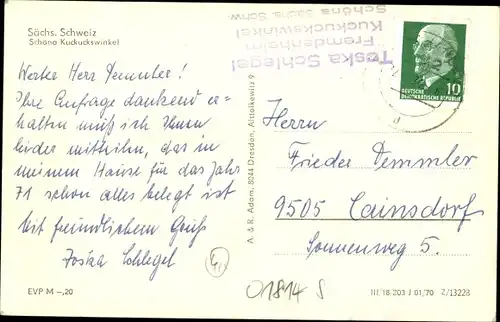 Sächs. Schweiz
Schöna Kuckuckswinkel
Werter Herr Demmler!
Ihre Anfrage dankend er-
halten muß ich Ihnen
leider mitteiln, das in
meinem Hause für das Jahr
71 schon alles belegt ist
Mit freundlichem Gruß
Toska Schlegel
EVP M –,20
A. & R. Adam, 8044 Dresden, Altkolkwitz 9
Toska Schlegel
Fremdenheim
Kuckuckswinkel
Schöna Sächs. Schw.
10
DEUTSCHE
DEMOKRATISCHE REPUBLIK
Herrn
Frieder Demmler
9505 Cainsdorf
Sonnenweg 5.
01814 S
III 18 203 J 01/70 2/13228